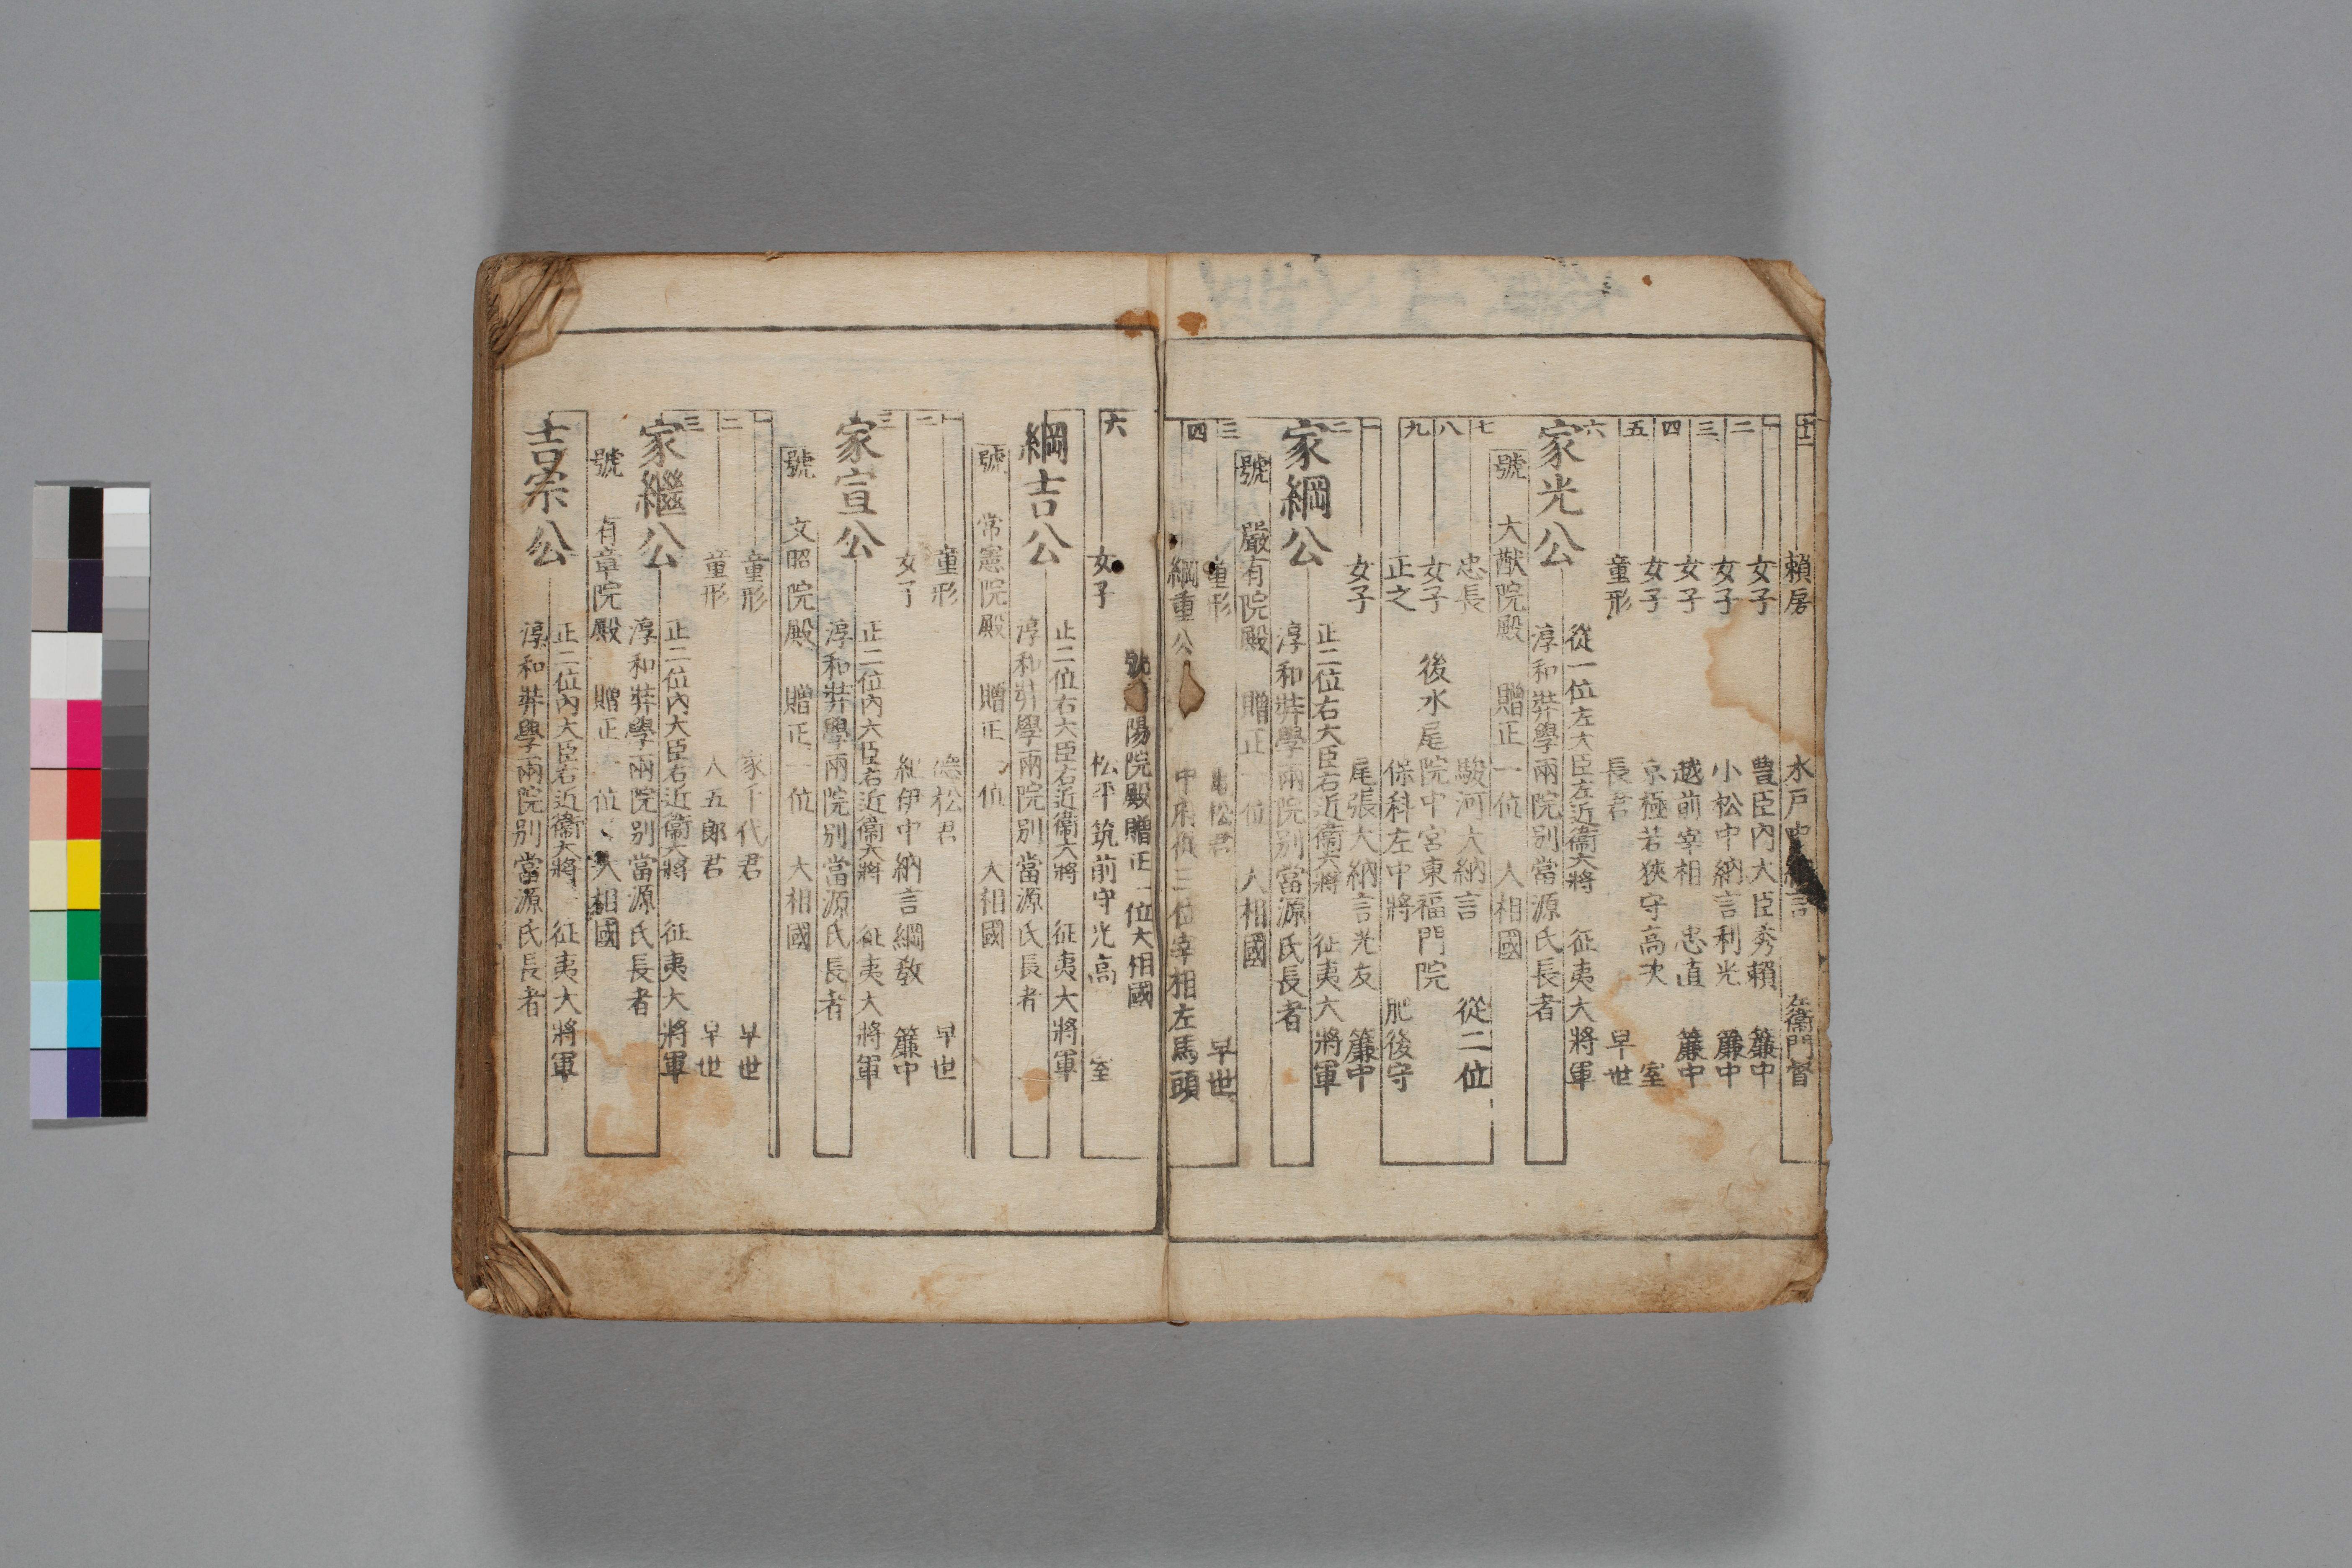 十一 賴房 水戸中納言 左衞門督
一 女子 豊臣内大臣秀頼 簾中
二 女子 小松中納言利光 簾中
三 女子 越前宰相 忠直 簾中
四 女子 京極若狹守高次 室
五 童形 長君 早世
六 家光公 從一位左大臣左近衞大將 征夷大將軍
淳和弉學兩院別當源氏長者
號 大猷院殿 贈正一位 大相國
七 忠長 駿河大納言 從二位
八 女子 後水尾院中宮東福門院
九 正之 保科左中將 肥後守
一 女子 尾張大納言光友 簾中
二 家綱公 正二位右大臣右近衞大將 征夷大將軍
淳和弉學兩院別當源氏長者
號 嚴有院殿 贈正一位 大相國
三 童形 松君 早世
四 綱重公 三位宰相左馬頭
號 陽院殿贈正一位大相國
六 女子 松平筑前守光高 室
綱吉公 正二位右大臣右近衞大將 征夷大將軍
淳和弉學兩院別當源氏長者
號 常憲院殿 贈正一位 大相國
一 童形 德松君 早世
二 女子 紀伊中納言綱敎 簾中
三 家宣公 正二位内大臣右近衞大將 征夷大將軍
淳和弉學兩院別當源氏長者
號 文昭院殿 贈正一位 大相國
一 童形 家千代君 早世
二 童形 大五郎君 早世
三 家繼公 正二位内大臣右近衞大將 征夷大將軍
淳和弉學兩院別當源氏長者
號 有章院殿 贈正一位 大相國
吉宗公 正二位内大臣右近衞大將 征夷大將軍
淳和弉學兩院別當源氏長者